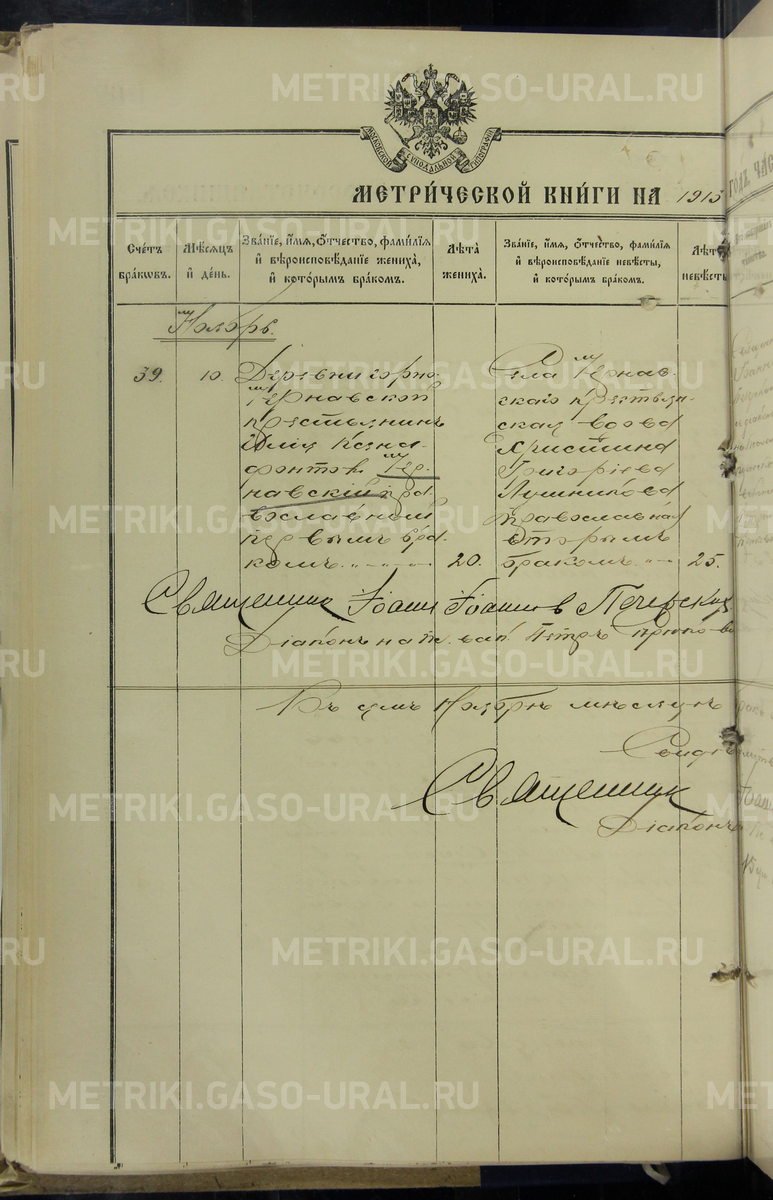 МОСКОВСКОЙ СѴНОДАЛЬНОЙ ТИПОГРАФІИ
МЕТРИ́ЧЕСКОЙ КНИ́ГИ НА 1915
Сче́тъ бра́кѡвъ.
Мѣ́сяцъ и҆ де́нь.
Зва́нїе, и҆́мѧ, ѻ҆́тчество, фами́лїѧ и҆ вѣроисповѣ́данїе жениха̀, и҆ кото́рымъ бра́комъ.
Лѣ́та жениха̀.
Зва́нїе, и҆́мѧ, ѻ҆́тчество, фами́лїѧ и҆ вѣроисповѣ́данїе невѣ́сты, и҆ кото́рымъ бра́комъ.
Лѣ́т
невѣ́сты
Ноябрь.
39.
10.
Деревни Горно-
Тернавской
крестьянинъ
Илія Ксено-
фонтов Тер-
навский пра-
вославный
первымъ бра-
комъ.
20.
Села Тернав-
скаго крестьян-
ская вдова
Христина
Григоріева
Лушникова
православная
вторымъ
бракомъ
25.
Священник Іоанн Іоаннов Печерских
Діаконъ на пс. вак. Петръ
Въ семъ Ноябрѣ мѣсяцѣ
Священник
Діаконъ
METRIKI.GASO-URAL.RU